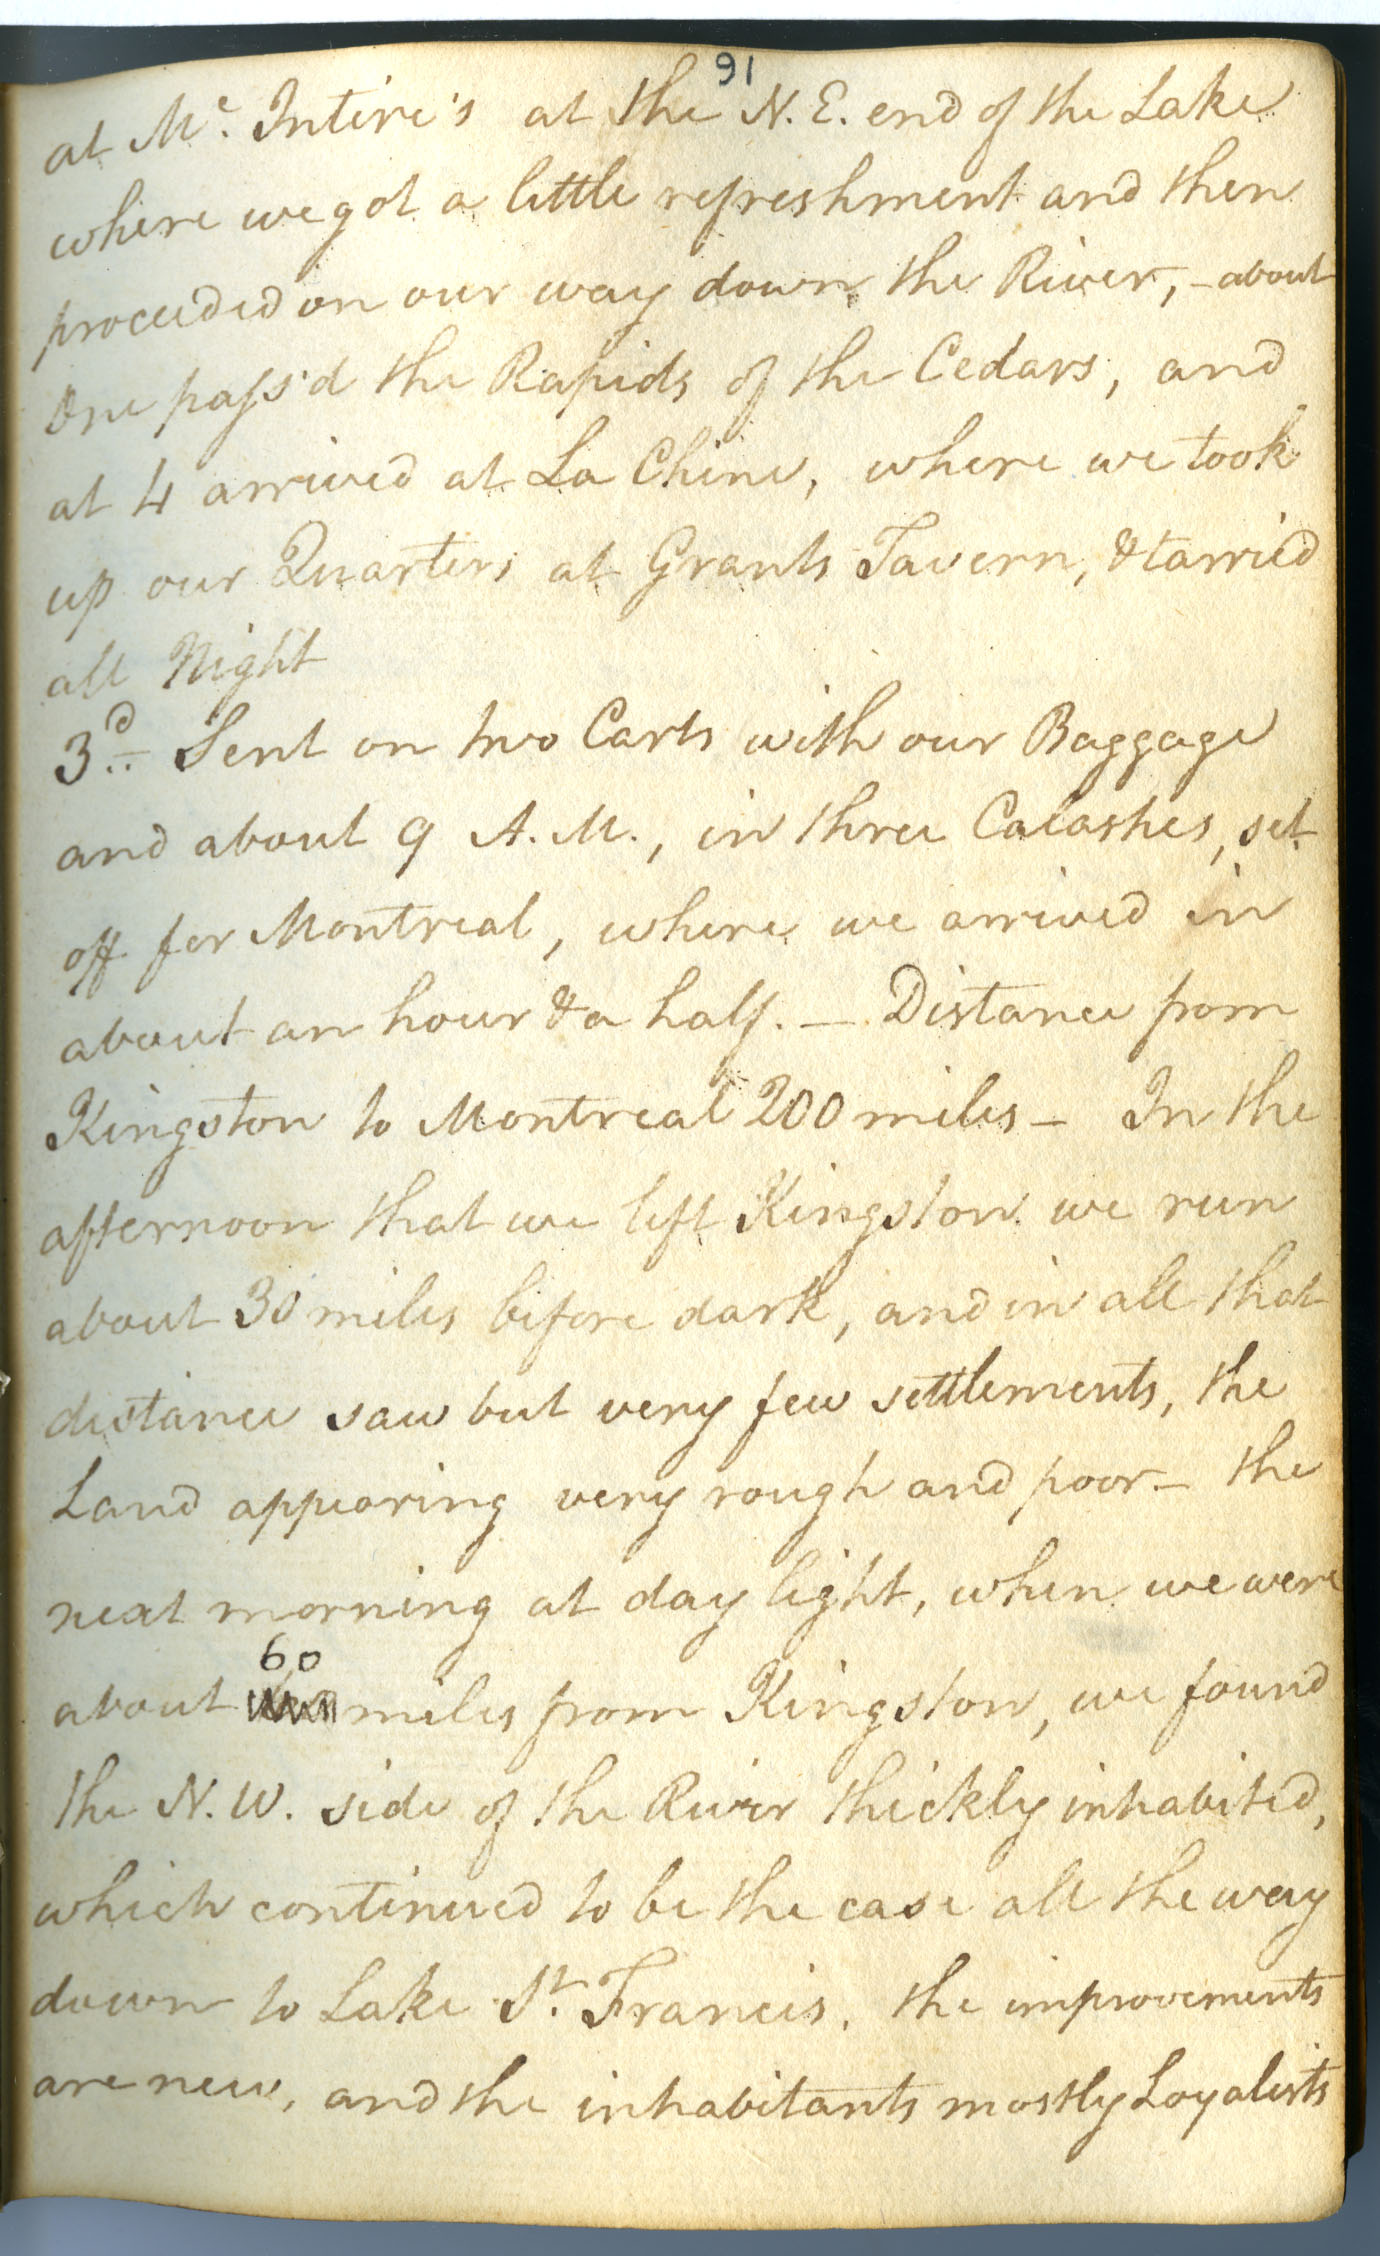 91
at Mc. Intire's at the N. E. end of the Lake
where we got a little refreshment and then
proceeded on our way down the River, - about
One pass'd the Rapids of the Cedars, and
at 4 arrived at La Chine, where we took
up our Quarters at Grants Tavern, & tarried
all Night
3d.. Sent on two Carts with our Baggage
and about 9 A. M., in three Calashes, set
off for Montreal, where we arrived in
about an hour & a half. — Distance from
Kingston to Montreal 200 miles — In the
afternoon that we left Kingston we run
about 30 miles before dark, and in all that
distance saw but very few settlements, the
Land appearing very rough and poor — the
next morning at day light, when we were
60
about miles from Kingston, we found
the N. W. side of the River thickly inhabited,
which continued to be the case all the way
down to Lake St. Francis. the improvements
are new, and the inhabitants mostly Loyalists